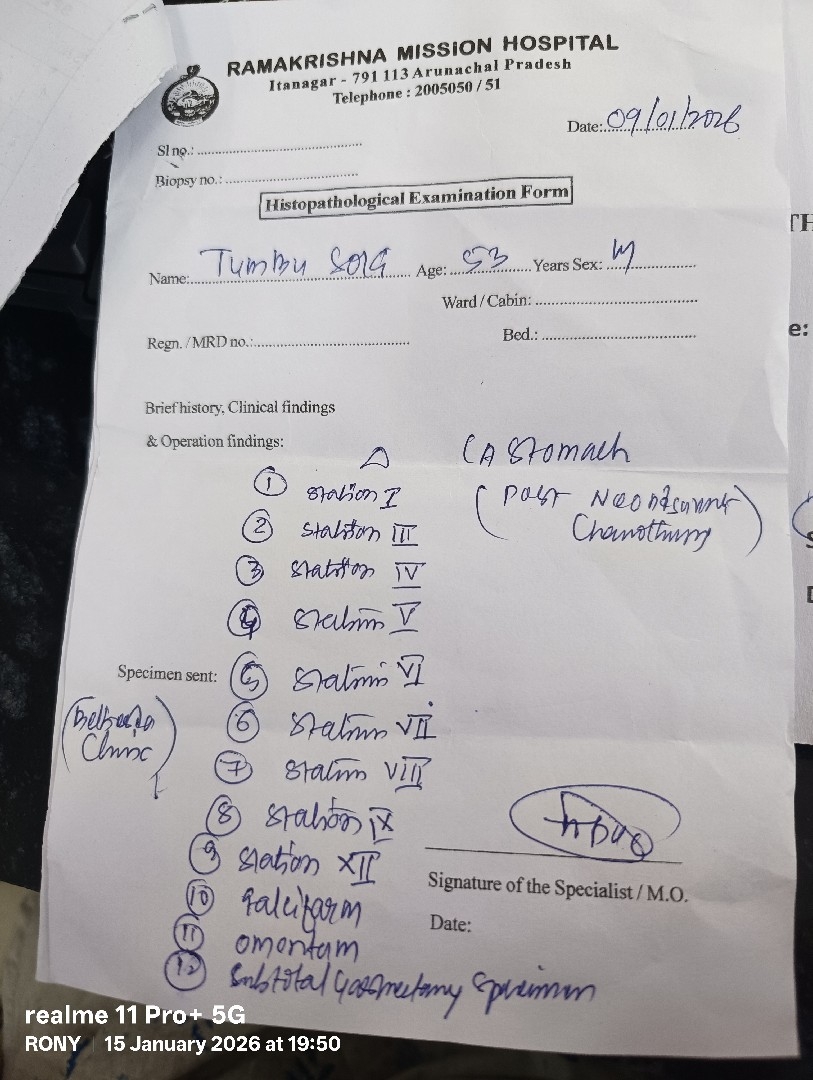 RAMAKRISHNA MISSION HOSPITAL
Itanagar - 791 113 Arunachal Pradesh
Telephone : 2005050 / 51
Date: 09/01/2026
Sl no.:
Biopsy no.:
Histopathological Examination Form
Name: Tumbu Sora Age: 53 Years Sex: M
Ward / Cabin:
Regn. / MRD no.: Bed.:
Brief history, Clinical findings
& Operation findings:
△ CA Stomach
(Post Neoadjuvant
Chemotherapy)
① Station I
② Station III
③ Station IV
④ Station V
Specimen sent: ⑤ Station VI
⑥ Station VII
Clinic
⑦ Station VIII
⑧ Station IX
⑨ Station XII
⑩ Falcifarm
⑪ Omentam
⑫ Subtotal Gastrectomy Specimen
Signature of the Specialist / M.O.
Date:
TH
e:
realme 11 Pro+ 5G
RONY | 15 January 2026 at 19:50